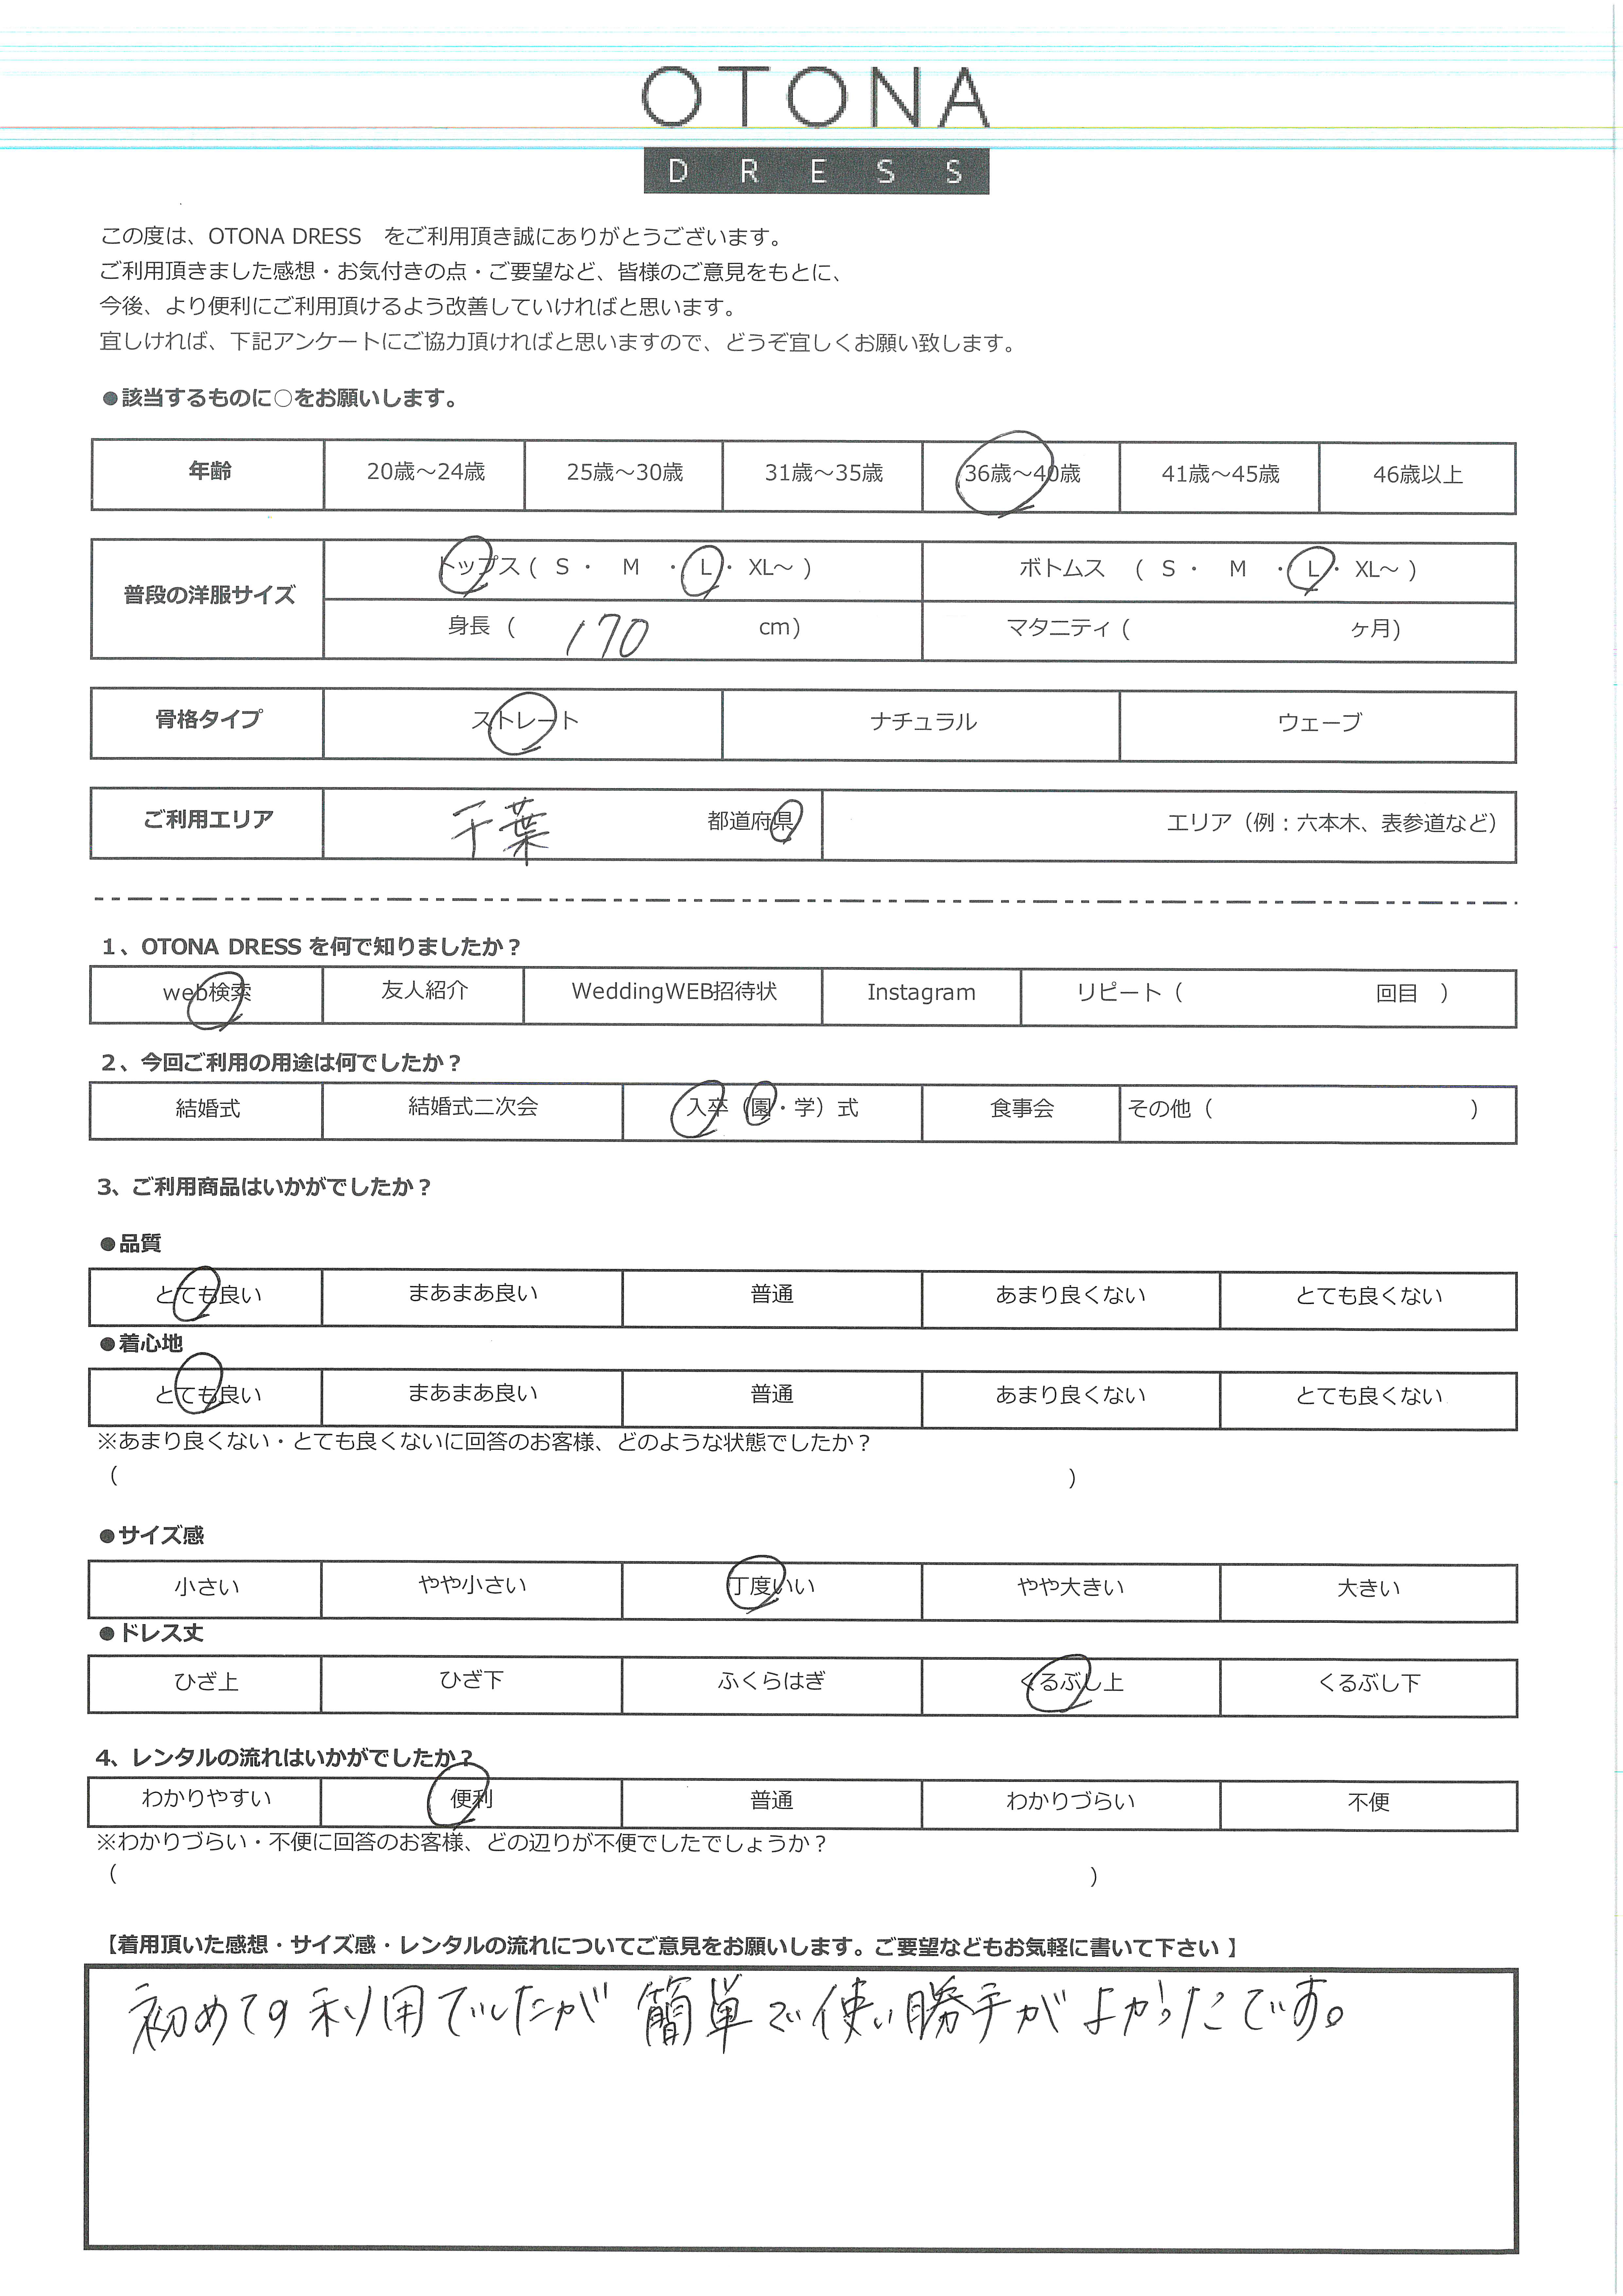 OTONA
DRESS
この度は、OTONA DRESS をご利用頂き誠にありがとうございます。
ご利用頂きました感想・お気付きの点・ご要望など、皆様のご意見をもとに、
今後、より便利にご利用頂けるよう改善していければと思います。
宜しければ、下記アンケートにご協力頂ければと思いますので、どうぞ宜しくお願い致します。
●該当するものに○をお願いします。
年齢 20歳～24歳 25歳～30歳 31歳～35歳 36歳～40歳 41歳～45歳 46歳以上
普段の洋服サイズ トップス ( S ・ M ・ L ・ XL～ ) ボトムス ( S ・ M ・ L ・ XL～ )
身長 ( 170 cm) マタニティ ( ヶ月)
骨格タイプ ストレート ナチュラル ウェーブ
ご利用エリア 千葉 都道府県 エリア（例：六本木、表参道など）
1、OTONA DRESS を何で知りましたか？
web検索 友人紹介 WeddingWEB招待状 Instagram リピート（ 回目 ）
2、今回ご利用の用途は何でしたか？
結婚式 結婚式二次会 入卒（園・学）式 食事会 その他（ ）
3、ご利用商品はいかがでしたか？
●品質
とても良い まあまあ良い 普通 あまり良くない とても良くない
●着心地
とても良い まあまあ良い 普通 あまり良くない とても良くない
※あまり良くない・とても良くないに回答のお客様、どのような状態でしたか？
（ ）
●サイズ感
小さい やや小さい 丁度いい やや大きい 大きい
●ドレス丈
ひざ上 ひざ下 ふくらはぎ くるぶし上 くるぶし下
4、レンタルの流れはいかがでしたか？
わかりやすい 便利 普通 わかりづらい 不便
※わかりづらい・不便に回答のお客様、どの辺りが不便でしたでしょうか？
（ ）
【着用頂いた感想・サイズ感・レンタルの流れについてご意見をお願いします。ご要望などもお気軽に書いて下さい 】
初めての利用でしたが 簡単で使い勝手がよかったです。